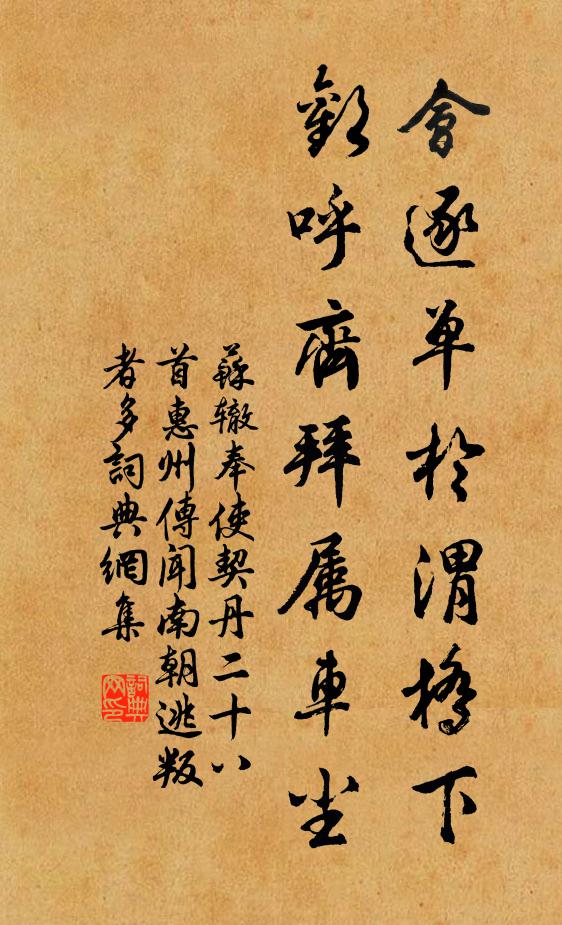 會逐单於渭橋下
歡呼齊拜属車尘
蘇辙奉使契丹二十八
首惠州傳聞南朝逃叛
者多詞典網集
詞典网印